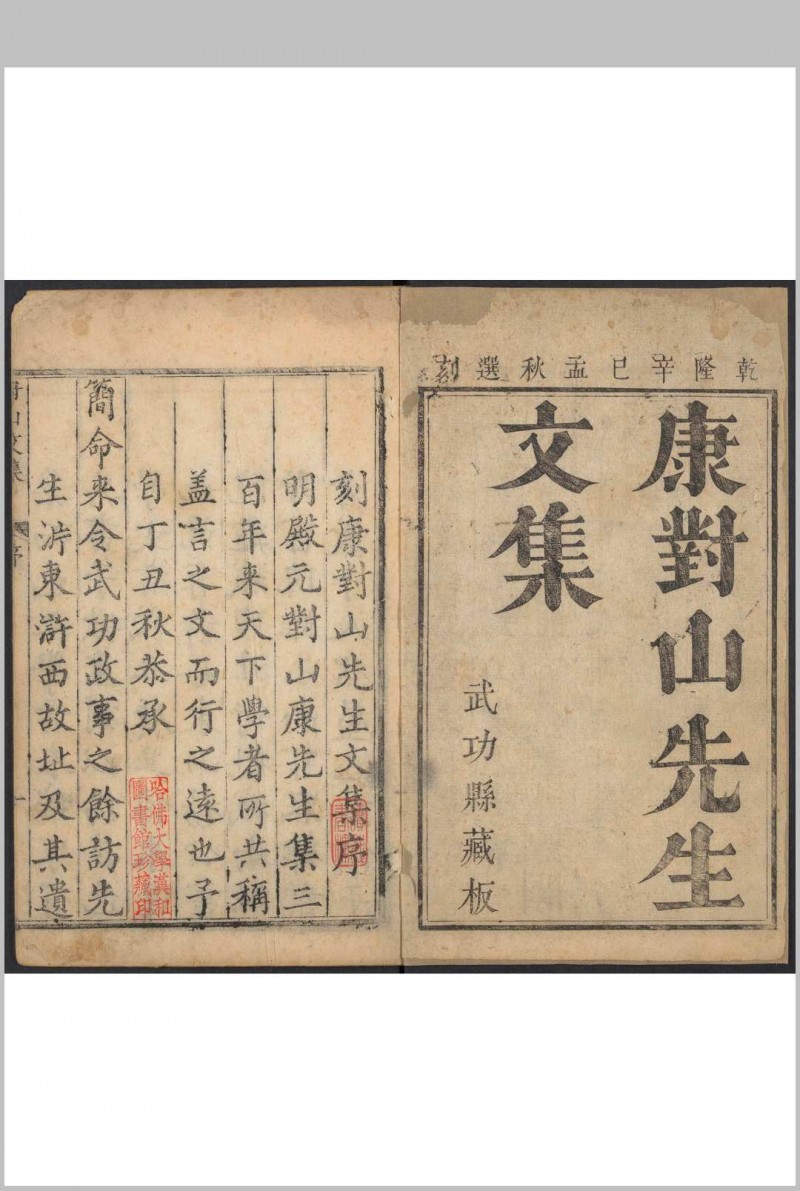 乾隆辛巳孟秋選刻
康對山先生
文集
武功縣藏板
刻康對山先生文集序
明殿元對山康先生集三
百年来天下學者所共稱
盖言之文而行之遠也予
自丁丑秋恭承
簡命来令武功政事之餘訪先
生滸東滸西故址及其遺
哈佛大學漢和
圖書館珍藏印